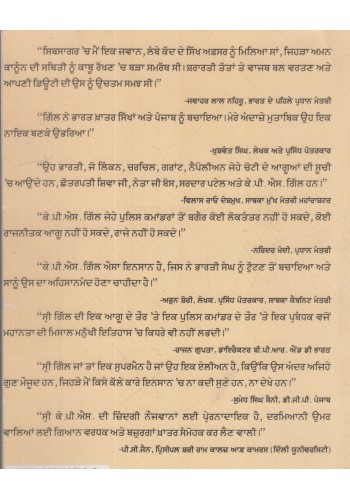 “ਸਿਬਸਾਗਰ 'ਚ ਮੈਂ ਇਕ ਜਵਾਨ, ਲੰਬੇ ਕੱਦ ਦੇ ਸਿੱਖ ਅਫ਼ਸਰ ਨੂੰ ਮਿਲਿਆ ਸਾਂ, ਜਿਹੜਾ ਅਮਨ
ਕਾਨੂੰਨ ਦੀ ਸਥਿਤੀ ਨੂੰ ਕਾਬੂ ਰੱਖਣ 'ਚ ਬੜਾ ਸਮਰੱਥ ਸੀ। ਸ਼ਰਾਰਤੀ ਤੱਤਾਂ ਤੇ ਵਾਜਬ ਬਲ ਵਰਤਣ ਅਤੇ
ਆਪਣੀ ਡਿਊਟੀ ਦੀ ਉਸ ਨੂੰ ਉਚਤਮ ਸਮਝ ਸੀ।”
-ਜਵਾਹਰ ਲਾਲ ਨਹਿਰੂ, ਭਾਰਤ ਦੇ ਪਹਿਲੇ ਪ੍ਰਧਾਨ ਮੰਤਰੀ
“ਗਿੱਲ ਨੇ ਭਾਰਤ ਖ਼ਾਤਰ ਸਿੱਖਾਂ ਅਤੇ ਪੰਜਾਬ ਨੂੰ ਬਚਾਇਆ। ਮੇਰੇ ਅੰਦਾਜ਼ੇ ਮੁਤਾਬਿਕ ਉਹ ਇਕ
ਨਾਇਕ ਬਣਕੇ ਉਭਰਿਆ।”
-ਖੁਸ਼ਵੰਤ ਸਿੰਘ, ਲੇਖਕ ਅਤੇ ਪ੍ਰਸਿੱਧ ਪੱਤਰਕਾਰ
“ਉਹ ਭਾਰਤੀ, ਜੋ ਲਿੰਕਨ, ਚਰਚਿਲ, ਗਰਾਂਟ, ਨੈਪੋਲੀਅਨ ਜੇਹੇ ਚੋਟੀ ਦੇ ਆਗੂਆਂ ਦੀ ਸੂਚੀ
'ਚ ਆਉਂਦੇ ਹਨ, ਛੱਤਰਪਤੀ ਸ਼ਿਵਾ ਜੀ, ਨੇਤਾ ਜੀ ਬੋਸ, ਸਰਦਾਰ ਪਟੇਲ ਅਤੇ ਕੇ.ਪੀ.ਐਸ. ਗਿੱਲ ਹਨ।”
-ਵਿਲਾਸ ਰਾਓ ਦੇਸ਼ਮੁਖ, ਸਾਬਕਾ ਮੁੱਖ ਮੰਤਰੀ ਮਹਾਂਰਾਸ਼ਟਰ
“ਕੇ.ਪੀ.ਐਸ. ਗਿੱਲ ਜੇਹੇ ਪੁਲਿਸ ਕਮਾਂਡਰਾਂ ਤੋਂ ਬਗੈਰ ਕੋਈ ਲੋਕਤੰਤਰ ਨਹੀਂ ਹੋ ਸਕਦਾ, ਕੋਈ
ਰਾਜਨੀਤਕ ਆਗੂ ਨਹੀਂ ਹੋ ਸਕਦੇ, ਰਾਜੇ ਨਹੀਂ ਹੋ ਸਕਦੇ।”
-ਨਰਿੰਦਰ ਮੋਦੀ, ਪ੍ਰਧਾਨ ਮੰਤਰੀ
“ਕੇ.ਪੀ.ਐਸ. ਗਿੱਲ ਐਸਾ ਇਨਸਾਨ ਹੈ, ਜਿਸ ਨੇ ਭਾਰਤੀ ਸੰਘ ਨੂੰ ਟੁੱਟਣ ਤੋਂ ਬਚਾਇਆ ਅਤੇ
ਸਾਨੂੰ ਉਸ ਦਾ ਅਹਿਸਾਨਮੰਦ ਹੋਣਾ ਚਾਹੀਦਾ ਹੈ।”
-ਅਰੁਨ ਸ਼ੋਰੀ, ਲੇਖਕ, ਪ੍ਰਸਿੱਧ ਪੱਤਰਕਾਰ, ਸਾਬਕਾ ਕੈਬਨਿਟ ਮੰਤਰੀ
“ਸ੍ਰੀ ਗਿੱਲ ਦੀ ਇਕ ਆਗੂ ਦੇ ਤੌਰ ਤੇ ਇਕ ਪੁਲਿਸ ਕਮਾਂਡਰ ਦੇ ਤੌਰ 'ਤੇ ਇਕ ਪ੍ਰਬੰਧਕ ਵਜੋਂ
ਮਹਾਨਤਾ ਦੀ ਮਿਸਾਲ ਮਨੁੱਖੀ ਇਤਿਹਾਸ 'ਚ ਕਿਧਰੇ ਵੀ ਨਹੀਂ ਲਭਦੀ।”
-ਰਾਜਨ ਗੁਪਤਾ, ਡਾਇਰੈਕਟਰ ਬੀ.ਪੀ.ਆਰ. ਐਂਡ ਡੀ ਭਾਰਤ
“ਸ੍ਰੀ ਗਿੱਲ ਜਾਂ ਤਾਂ ਇਕ ਸੁਪਰਮੈਨ ਹੈ ਜਾਂ ਉਹ ਇਕ ਏਲੀਅਨ ਹੈ, ਕਿਉਂਕਿ ਉਸ ਅੰਦਰ ਅਜਿਹੇ
ਗੁਣ ਮੌਜੂਦ ਹਨ, ਜਿਹੜੇ ਮੈਂ ਕਿਸੇ ਕੋਲੋਂ ਕਾਰੇ ਇਨਸਾਨ 'ਚ ਨਾ ਕਦੀ ਸੁਣੇ ਹਨ, ਨਾ ਦੇਖੇ ਹਨ।”
-ਸੁਮੇਧ ਸਿੰਘ ਸੈਣੀ, ਡੀ.ਜੀ.ਪੀ. ਪੰਜਾਬ
“ਸ੍ਰੀ ਕੇ.ਪੀ.ਐਸ. ਦੀ ਜ਼ਿੰਦਗੀ ਨੌਜਵਾਨਾਂ ਲਈ ਪ੍ਰੇਰਨਾਦਾਇਕ ਹੈ, ਦਰਮਿਆਨੀ ਉਮਰ
ਵਾਲਿਆਂ ਲਈ ਗਿਆਨ ਵਰਧਕ ਅਤੇ ਬਜ਼ੁਰਗਾਂ ਖ਼ਾਤਰ ਸੰਮੋਹਕ ਕਰ ਲੈਣ ਵਾਲੀ।”
-ਪੀ.ਸੀ.ਜੈਨ, ਪ੍ਰਿੰਸੀਪਲ ਸ਼ਰੀ ਰਾਮ ਕਾਲਜ ਆਫ਼ ਕਾਮਰਸ (ਦਿੱਲੀ ਯੂਨੀਵਰਸਿਟੀ)